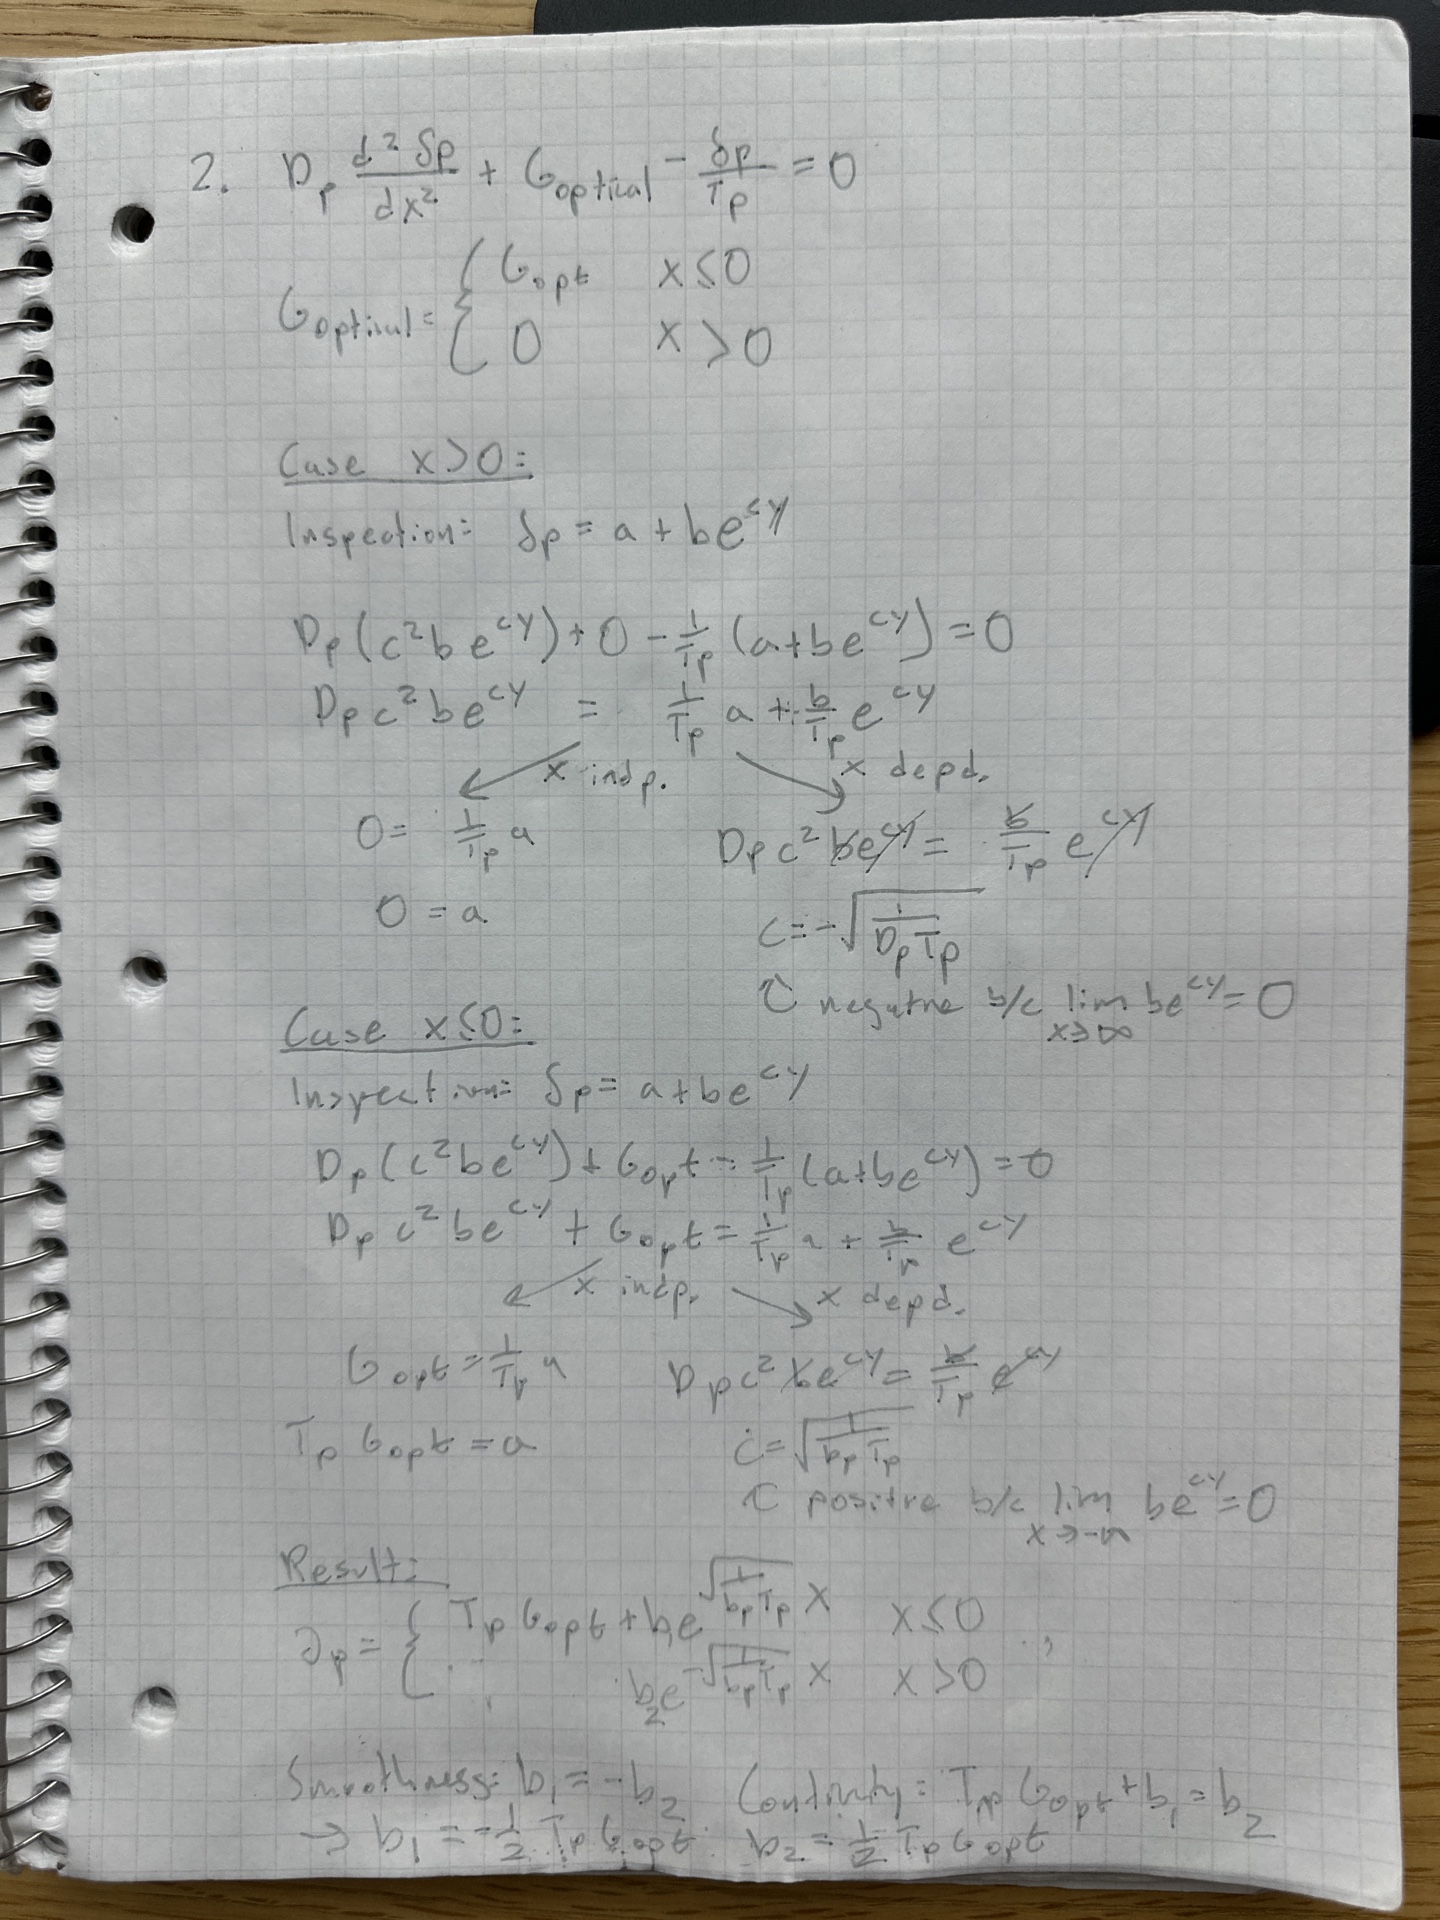 2. Dp d²δp/dx² + Goptical - δp/τp = 0
Goptical = { Gopt x≤0
0 x>0
Case x>0:
Inspection: δp = a + be^cx
Dp(c²be^cx) + 0 - 1/τp (a+be^cx) = 0
Dp c²be^cx = 1/τp a + b/τp e^cx
x indp. x depd.
0 = 1/τp a Dp c² be^cx = b/τp e^cx
0 = a c = -√(1/(Dp τp))
negative b/c lim x→∞ be^cx = 0
Case x≤0:
Inspection: δp = a+be^cx
Dp(c²be^cx) + Gopt - 1/τp (a+be^cx) = 0
Dp c²be^cx + Gopt = 1/τp a + b/τp e^cx
x indp. x depd.
Gopt = 1/τp a Dp c² be^cx = b/τp e^cx
τp Gopt = a c = √(1/(Dp τp))
positive b/c lim x→-∞ be^cx = 0
Result:
∂p = { τp Gopt + b₁e^(√(1/(Dp τp)) x) x≤0
b₂e^(-√(1/(Dp τp)) x) x>0
Smoothness: b₁ = -b₂ Continuity: τp Gopt + b₁ = b₂
→ b₁ = -1/2 τp Gopt b₂ = 1/2 τp Gopt